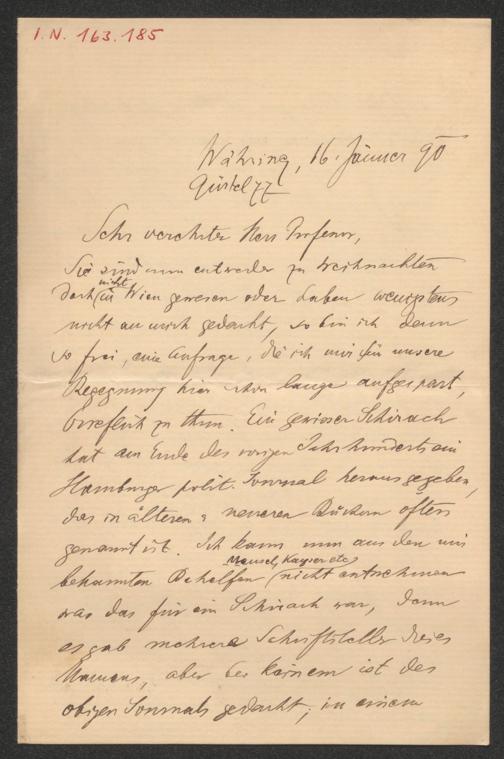 I.N. 163.185
Währing, 16. Jänner 90
Gürtel 77
Sehr verehrter Herr Professor,
Sie sind nun entweder zu Weihnachten
nicht
doch in Wien gewesen oder haben wenigstens
nicht an mich gedacht, so bin ich denn
so frei, eine Anfrage, die ich mir für unsere
Begegnung hier schon lange aufgespart,
brieflich zu thun. Ein gewisser Schirach
hat am Ende des vorigen Jahrhunderts ein
Hamburger polit. Journal herausgegeben,
das in älteren u neueren Büchern öfters
genannt ist. Ich kann nun aus den mir
Meusel, Kayser etc
bekannten Behelfen (nicht entnehmen
was das für ein Schirach war, denn
es gab mehrere Schriftsteller dieses
Namens, aber bei keinem ist des
obigen Journals gedacht; in einem